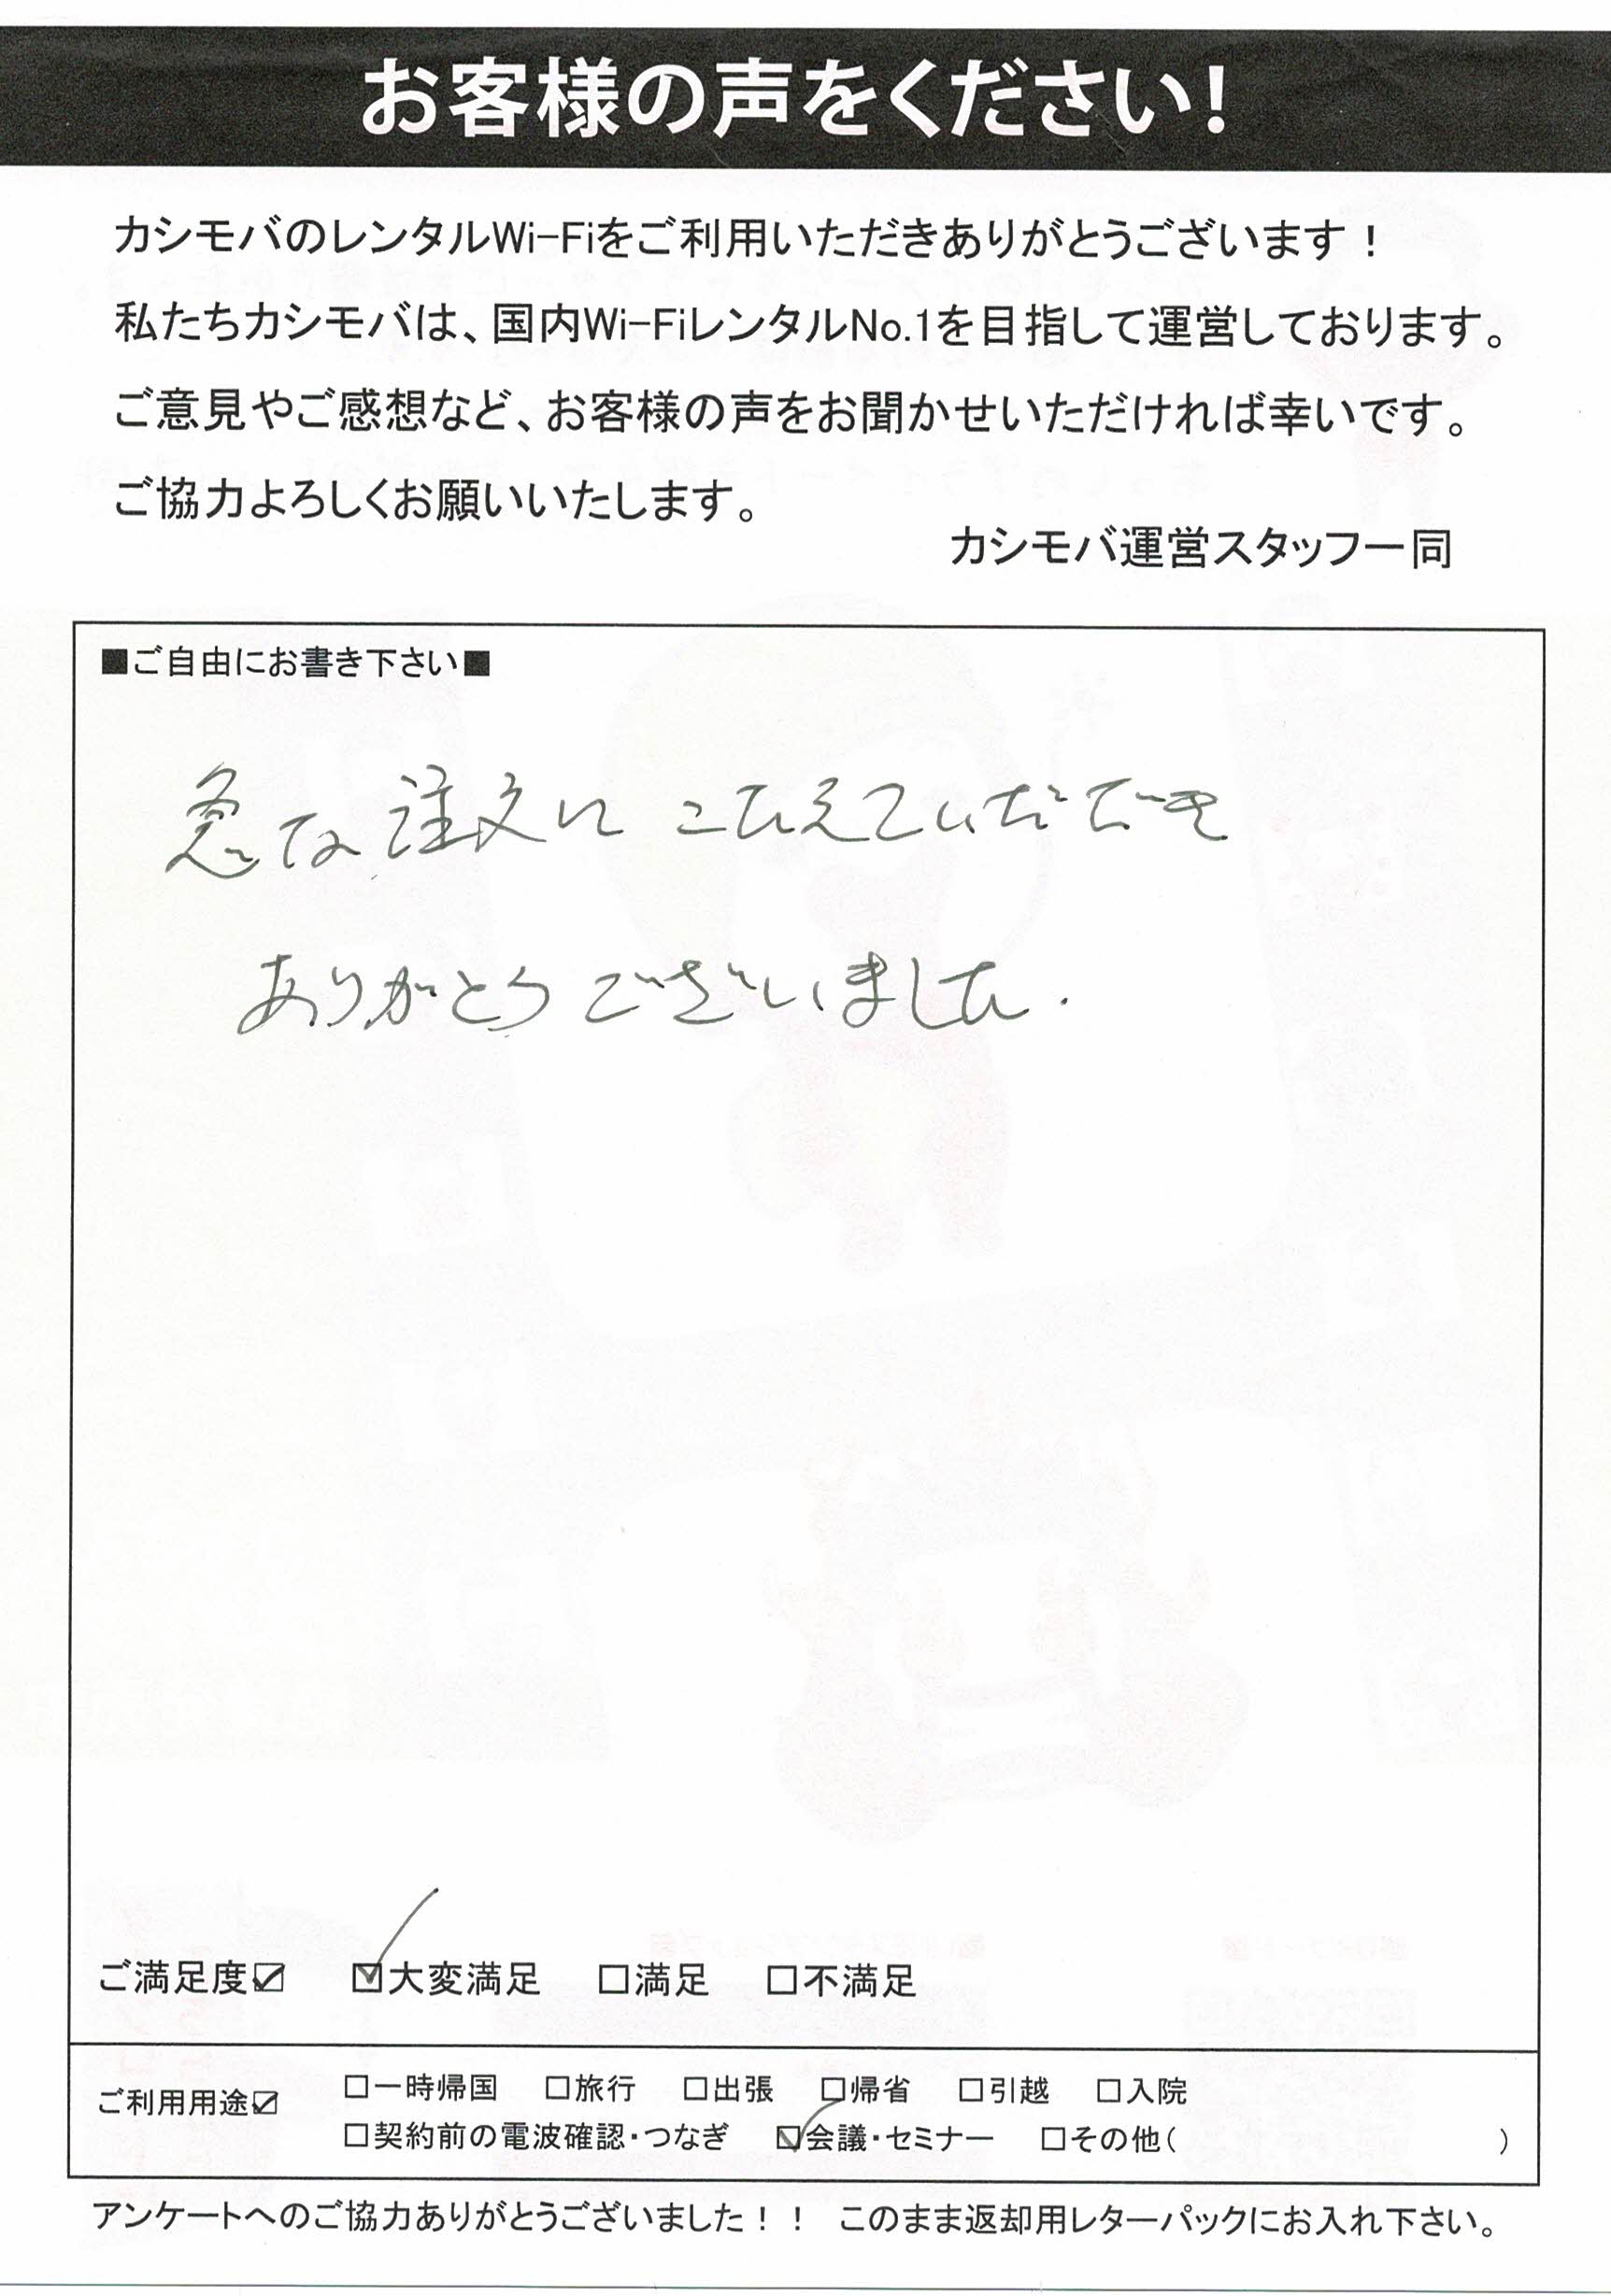 お客様の声をください!
カシモバのレンタルWi-Fiをご利用いただきありがとうございます！
私たちカシモバは、国内Wi-FiレンタルNo.1を目指して運営しております。
ご意見やご感想など、お客様の声をお聞かせいただければ幸いです。
ご協力よろしくお願いいたします。
カシモバ運営スタッフ一同
■ご自由にお書き下さい■
急な注文に こたえていだだき
ありがとう ございました.
ご満足度☑ ☑大変満足 □満足 □不満足
ご利用用途☑ □一時帰国 □旅行 □出張 □帰省 □引越 □入院
□契約前の電波確認・つなぎ ☑会議・セミナー □その他( )
アンケートへのご協力ありがとうございました！！ このまま返却用レターパックにお入れ下さい。